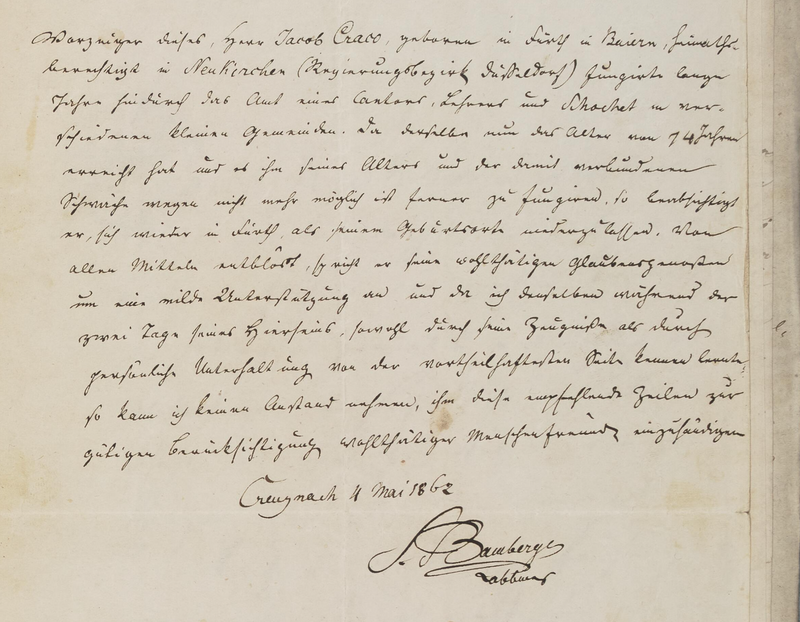 Vorzeiger dieses, Herr Jacob Craco, geboren in Fürth in Baiern, heimaths-
berechtigt in Neukirchen (Regierungsbezirk Düsseldorf) fungirte lange
Jahre hindurch das Amt eines Cantors, Lehrers und Schochet in ver-
schiedenen kleinen Gemeinden. Da derselbe nun das Alter von 74 Jahren
erreicht hat und es ihm seines Alters und der damit verbundenen
Schwäche wegen nicht mehr möglich ist ferner zu fungiren, so beabsichtigt
er, sich wieder in Fürth, als seinem Geburtsorte niederzulassen. Von
allen Mitteln entblöst, spricht er seine wohlthätigen Glaubensgenossen
um eine milde Unterstützung an und da ich denselben während der
zwei Tage seines Hierseins, sowohl durch seine Zeugnisse als durch
persönliche Unterhaltung von der vortheilhaftesten Seite kennen lernte,
so kann ich keinen Anstand nehmen, ihm diese empfehlende Zeilen zur
gütigen Berücksichtigung wohlthätiger Menschenfreunde einzuhändigen
Creuznach 4 Mai 1862
S. Bamberger
Rabbiner